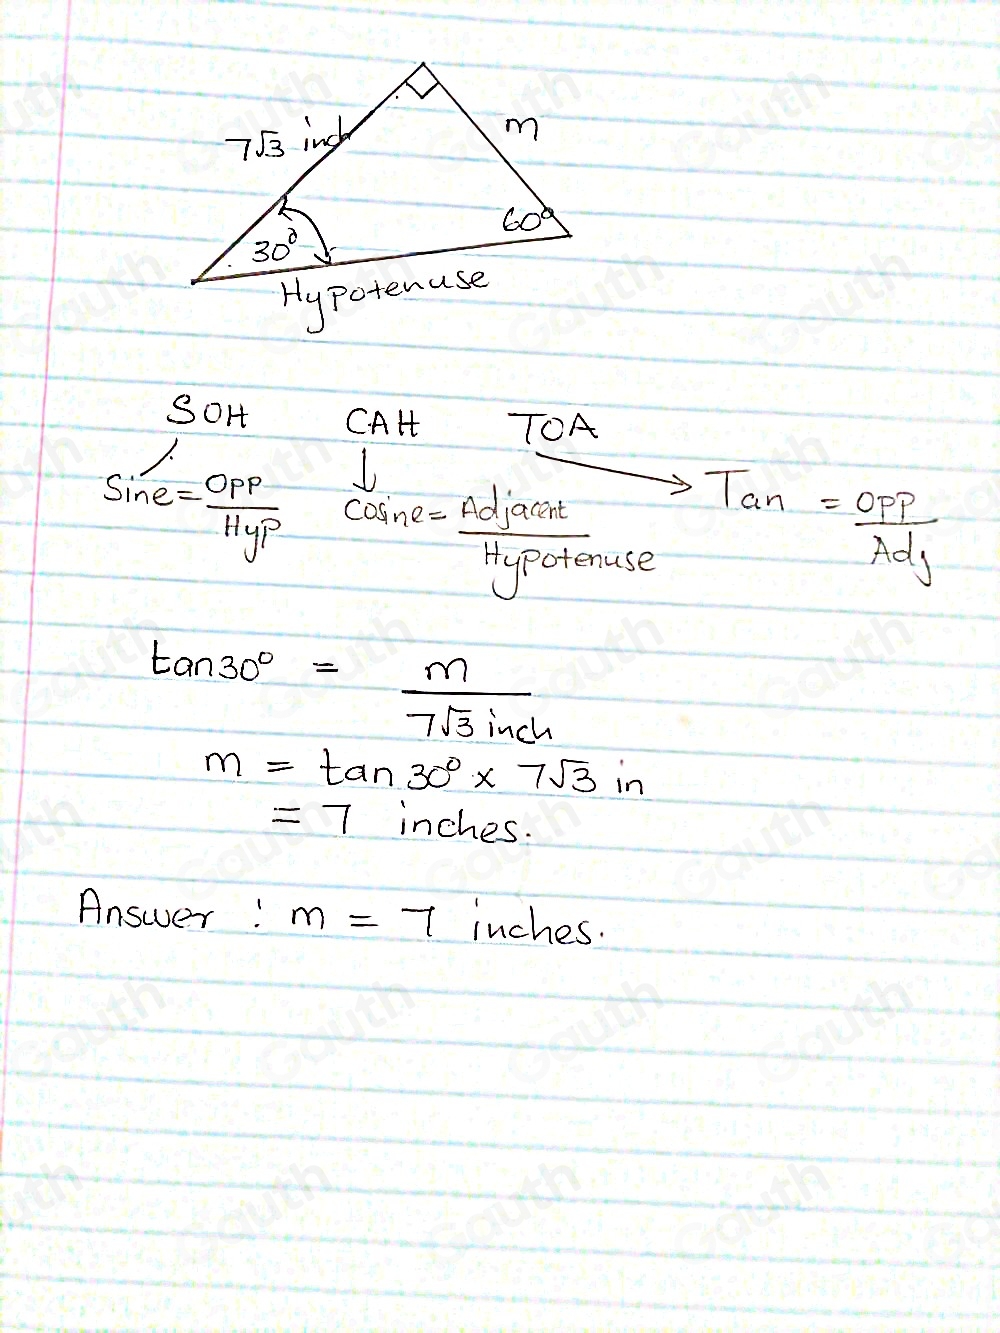 7√3 inch
m
30°
60°
Hypotenuse
SOH CAH TOA
Sine = Opp/Hyp
Cosine = Adjacent/Hypotenuse
Tan = Opp/Adj
tan30° = m/7√3 inch
m = tan 30° × 7√3 in
= 7 inches.
Answer : m = 7 inches.
Gauth